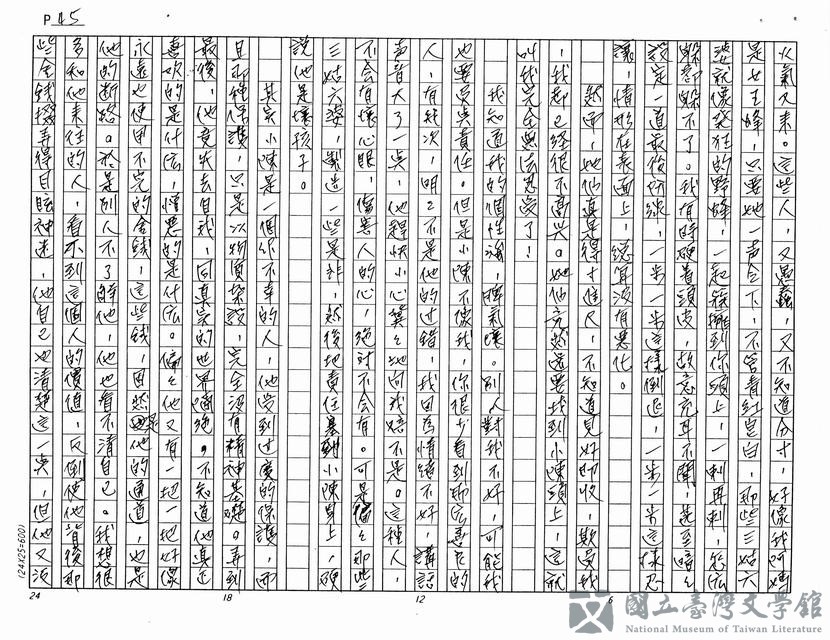 P 45
火氣又來。這些人,又愚蠢,又不知道分寸,好像我阿媽
是女王蜂,只要她一声令下,不管青紅皂白,那些三姑六
婆就像發狂的野蜂,一起簇擁到你頭上,一刺再刺,怎么
躲都躲不了。我有時硬着頭皮,故意充耳不聞,甚至暗暗
設定一道最後防線,一步一步這樣倒退,一步一步這樣忍
讓,情形在表面上,絕耳沒有惡化。
然而,她們真是得寸進尺,不知道見好即收,欺負我
,我都已經很不高興。她們竟然還要找到小陳頭上,這就
叫我完全無法忍受了!
我知道我的個性強,脾氣壞。別人對我不好,可能我
也要負責任。但是小陳不像我,你很少看到那麼善良的
人,有幾次,明明不是他的过錯,我因為情緒不好,講話
声音大了一點,他趕快小心翼翼地向我賠不是。這种人,
不会有壞心眼,傷害人的心,絕对不会有。可是偏偏那些
三姑六婆,製造一些是非,然後把責任暴到小陳身上,硬
說他是壞孩子。
其实小陳是一個很不幸的人,他受到过度的保護,而
且那種保護,只是以物質架設,完全没有精神基礎。弄到
最後,他竟失去自我,同真实的世界隔絕。不知道他真正
喜欢的是什么,憎惡的是什么。偏偏他又有一把一把好像
永遠也使用不完的金錢,這些錢,固然是他的通道,也是
他的断路。於是別人不了解他,他也看不清自己。我想很
多和他來往的人,看不到這個人的價值,反倒使他背後那
些金錢撥弄得目眩神迷,他自己也清楚這一點,但他又沒
(24X25=600)
24
18
12
6
國立臺灣文學館
National Museum of Taiwan Literature